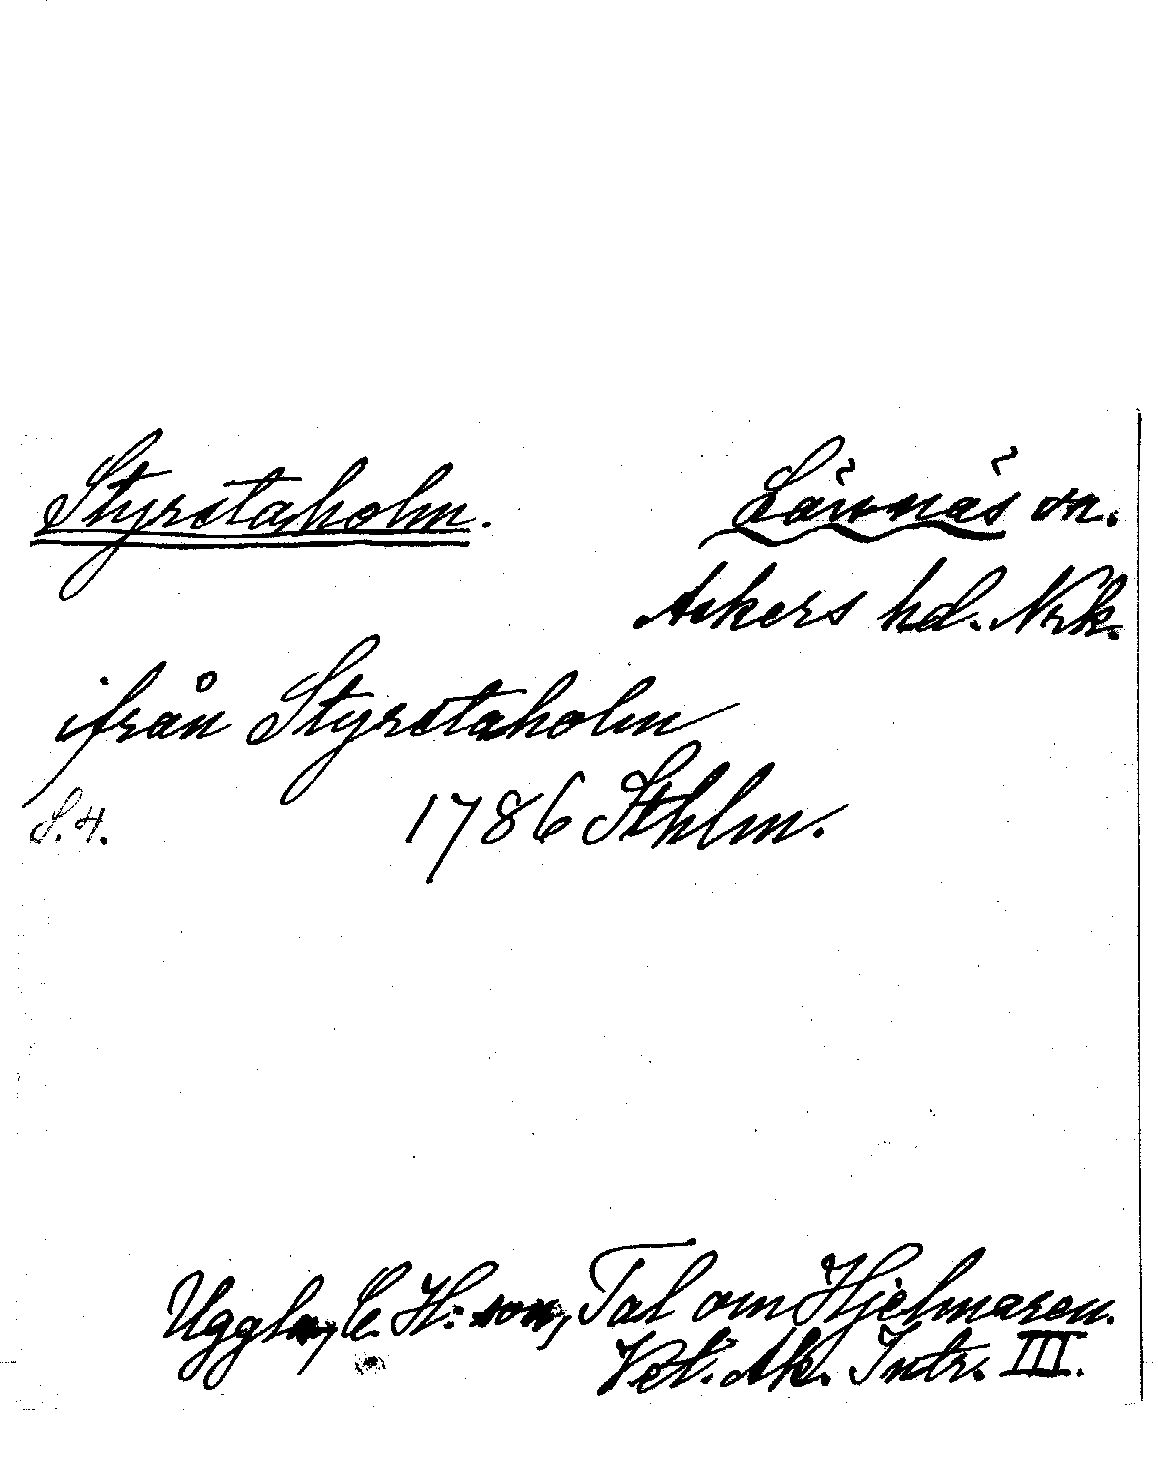 Styrstaholm.
Lännäs sn.
Askers hd. Nrk.
ifrån Styrstaholm
S.4.
1786 Sthlm.
Uggla, C. H:son, Tal om Hjelmaren.
Vet. Ak. Intr. III.